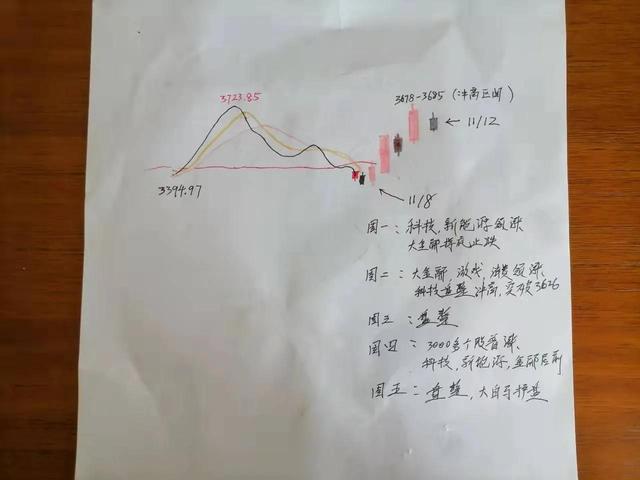 3723.85
3678-3685（冲高区间）
← 11/12
3394.97
11/8
图一：科技，新能源领涨
大金融探底止跌
图二：大金融，游戏，消费领涨，
科技盘整冲高，突破3626
图三：盘整
图四：3000多个股普涨，
科技，新能源，金融居前
图五：盘整，大白马护盘